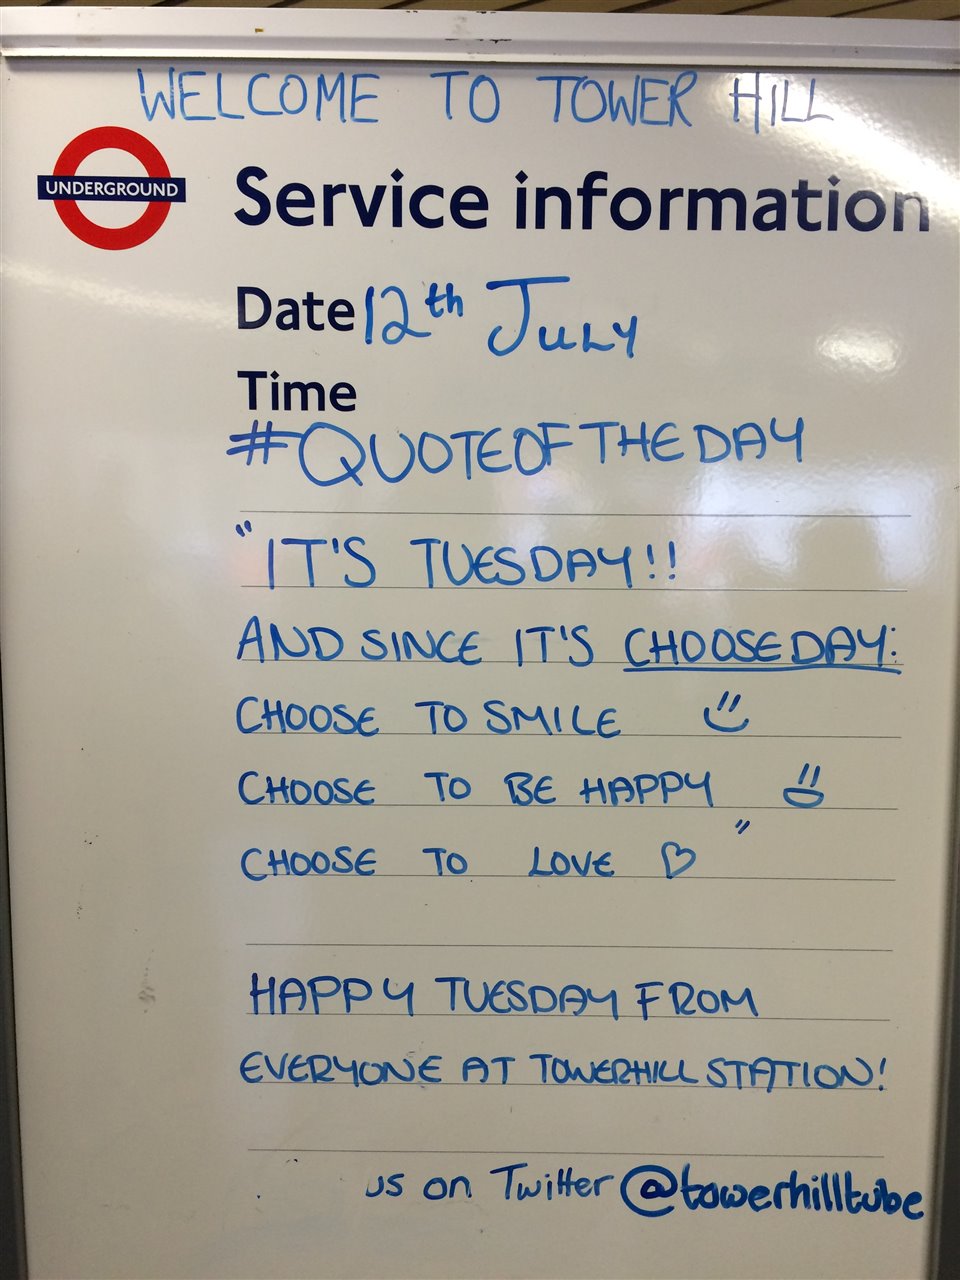 WELCOME TO TOWER HILL
UNDERGROUND
Service information
Date 12th JULY
Time
#QUOTEOFTHEDAY
"IT'S TUESDAY!!
AND SINCE IT'S CHOOSEDAY:
CHOOSE TO SMILE
CHOOSE TO BE HAPPY
CHOOSE TO LOVE ♡"
HAPPY TUESDAY FROM
EVERYONE AT TOWERHILL STATION!
us on Twitter @towerhilltube